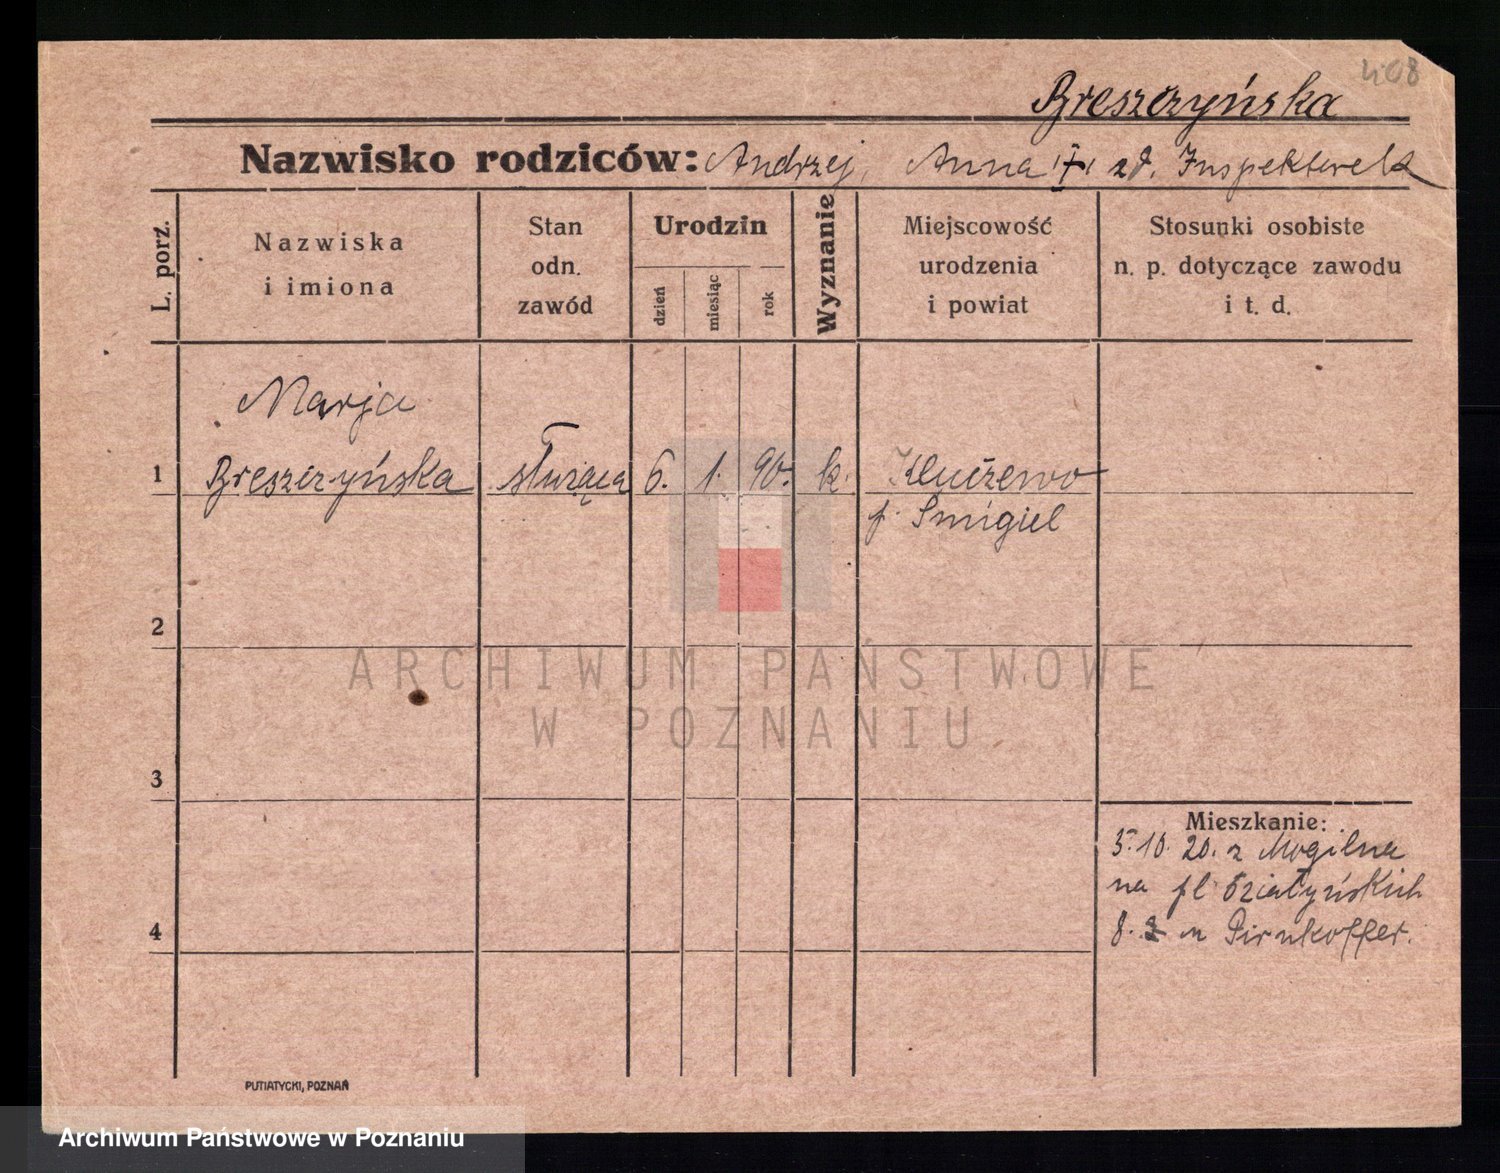 408
Breszczyńska
Nazwisko rodziców: Andrzej, Anna zd.
L. porz.
Nazwiska
i imiona
Stan
odn.
zawód
Urodzin
dzień
miesiąc
rok
Wyznanie
Miejscowość
urodzenia
i powiat
Stosunki osobiste
n. p. dotyczące zawodu
i t. d.
Marja
1 Breszczyńska służąca 6. 1. 90. k. Kluczewo
p. Śmigiel
2
ARCHIWUM PAŃSTWOWE
W POZNANIU
3
Mieszkanie:
5.10.20. z Mogilna
na pl Działyńskich
4
8.
PUTIATYCKI, POZNAŃ
Archiwum Państwowe w Poznaniu